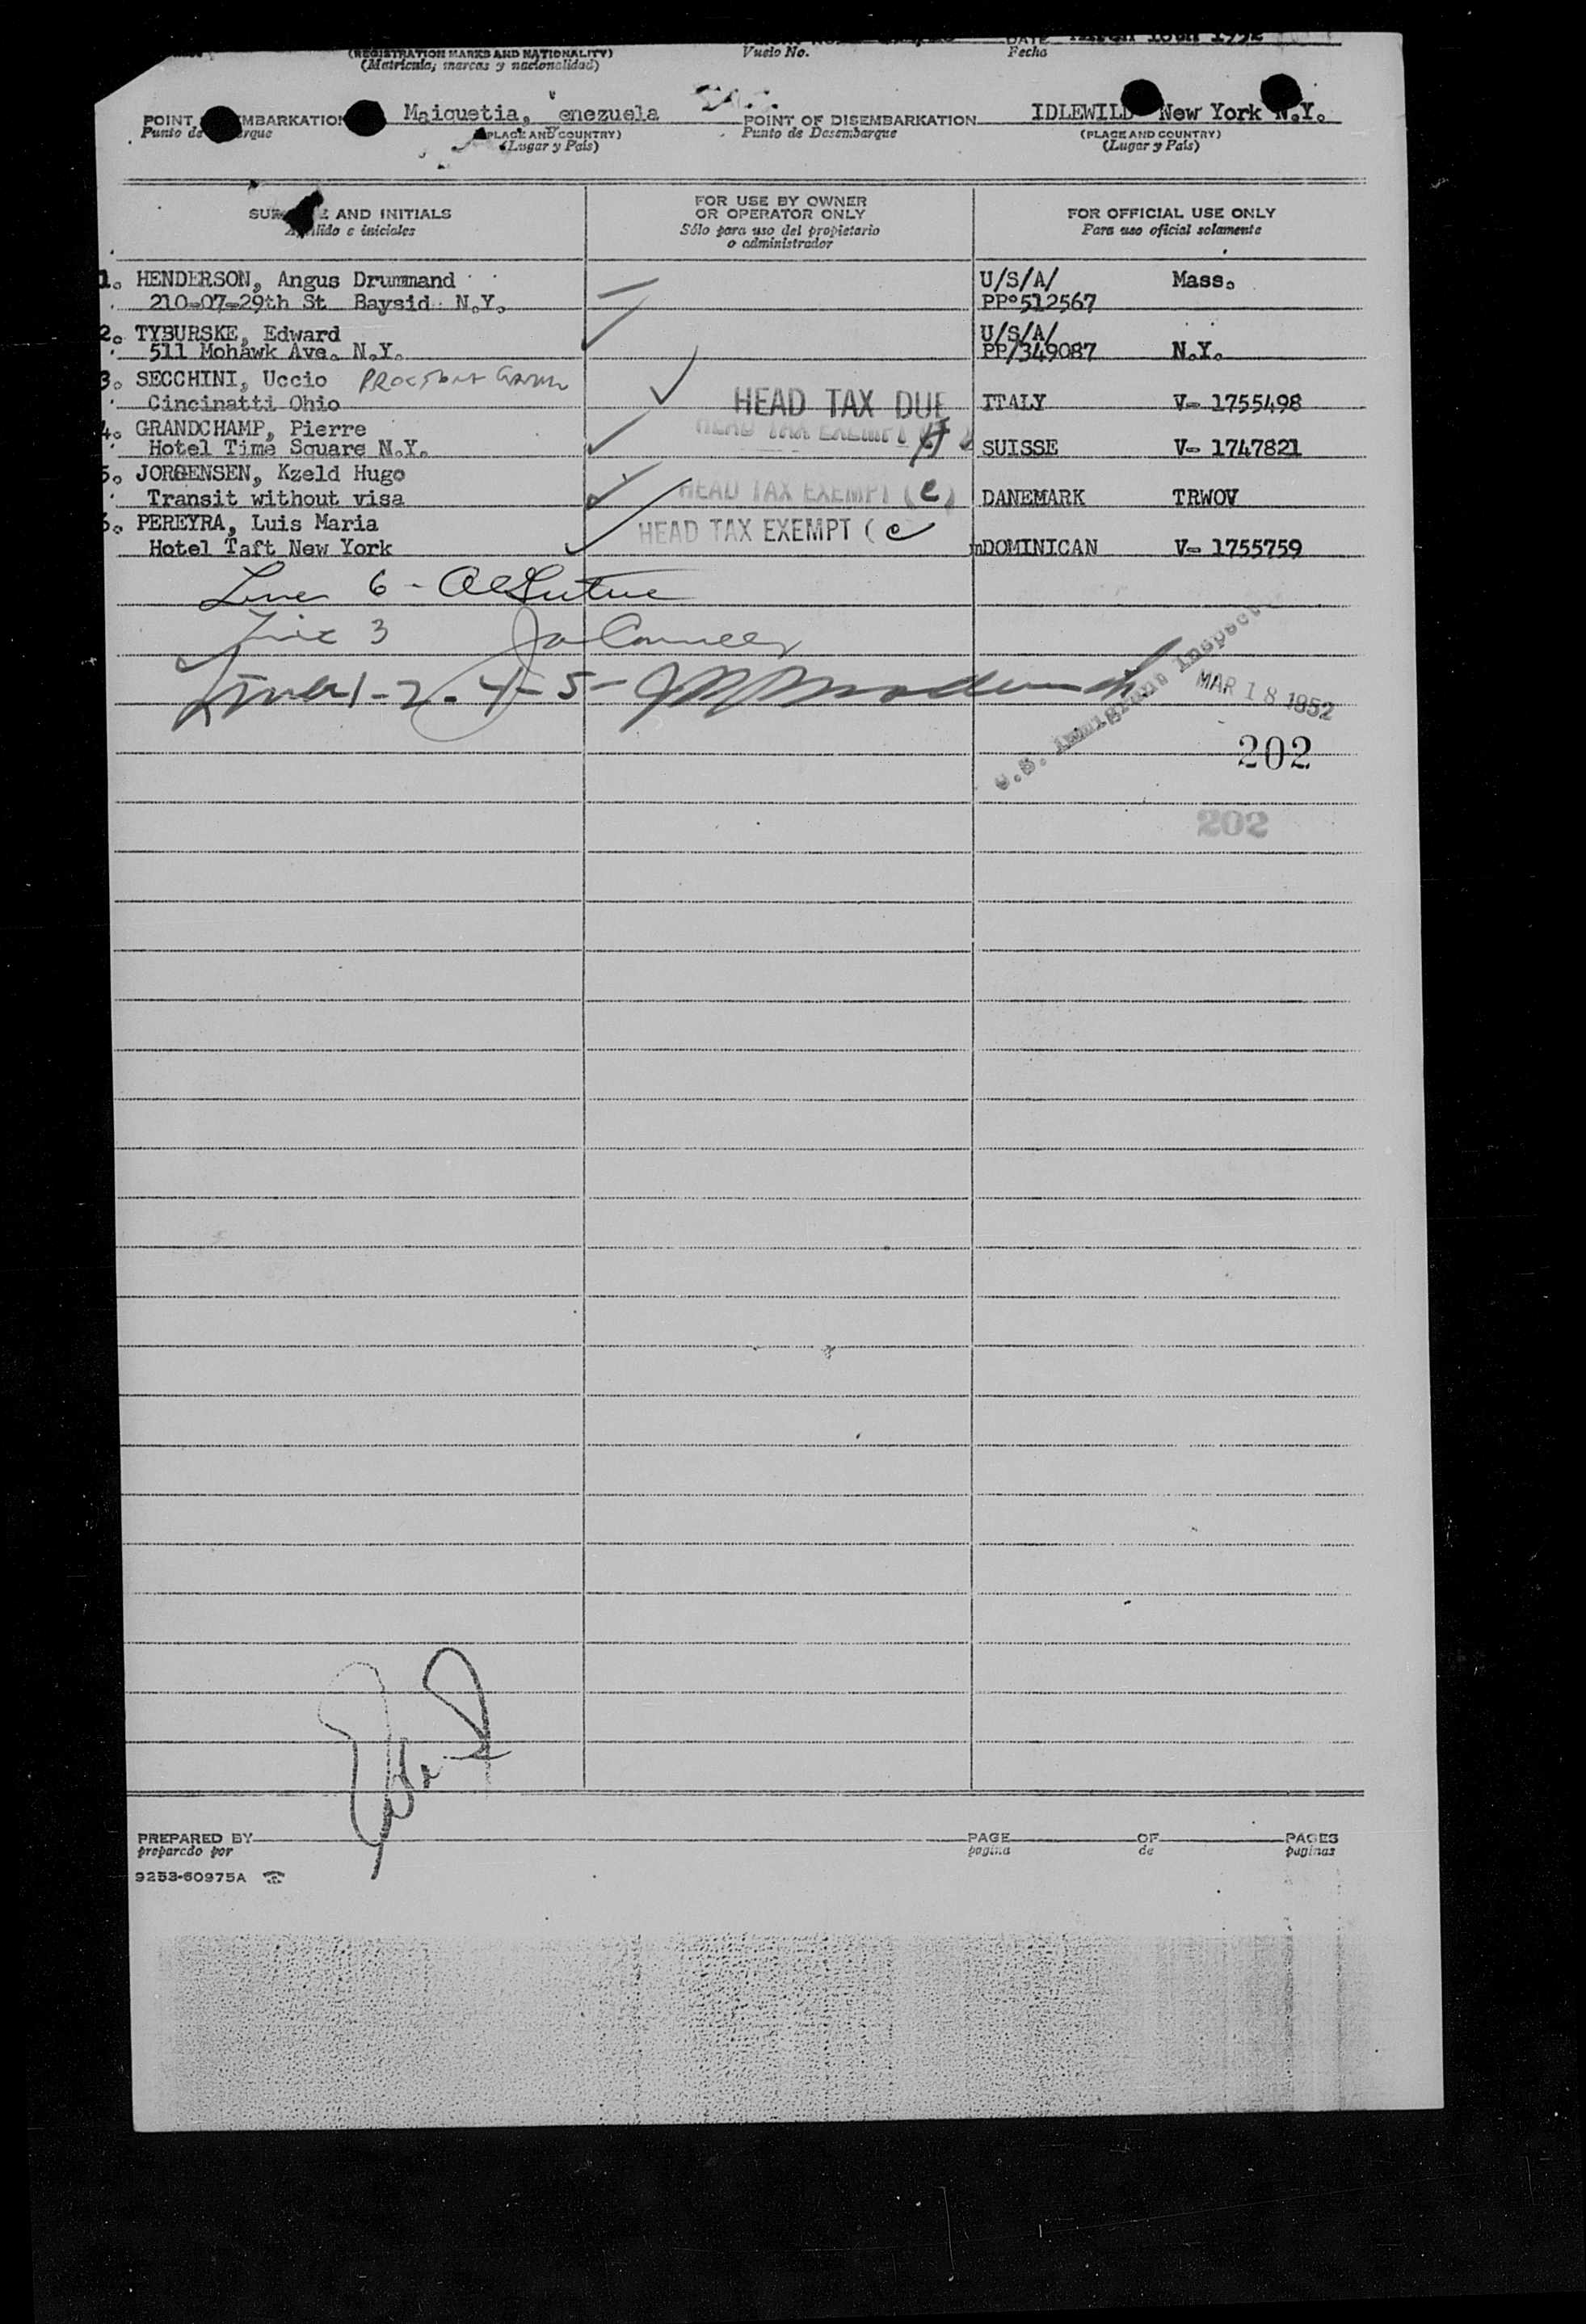 (REGISTRATION MARKS AND NATIONALITY)
(Matricula; marcas y nacionalidad)
Vuelo No.
DATE March 18th 1952
Fecha
POINT MBARKATION Maiquetia, enezuela
Punto de rque
(PLACE AND COUNTRY)
(Lugar y País)
POINT OF DISEMBARKATION IDLEWILD New York N.Y.
Punto de Desembarque
(PLACE AND COUNTRY)
(Lugar y País)
SUR E AND INITIALS
llido e iniciales
FOR USE BY OWNER
OR OPERATOR ONLY
Sólo para uso del propietario
o administrador
FOR OFFICIAL USE ONLY
Para uso oficial solamente
1. HENDERSON, Angus Drummand U/S/A/ Mass.
210-07-29th St Baysid N.Y. PP°512567
2. TYBURSKE, Edward U/S/A/
511 Mohawk Ave. N.Y. PP/349087 N.Y.
3. SECCHINI, Uccio
Cincinatti Ohio HEAD TAX DUE ITALY V- 1755498
4. GRANDCHAMP, Pierre HEAD TAX EXEMPT
Hotel Time Square N.Y. SUISSE V- 1747821
5. JORGENSEN, Kzeld Hugo
Transit without visa HEAD TAX EXEMPT (e) DANEMARK TRWOV
6. PEREYRA, Luis Maria
Hotel Taft New York HEAD TAX EXEMPT (e DOMINICAN V- 1755759
Line 6 -
Line 3
Lines 1-2-4-5-
U.S. Immigrant Inspector
MAR 18 1952
202
202
PREPARED BY PAGE OF PAGES
preparado por pagina de paginas
9253-60975A